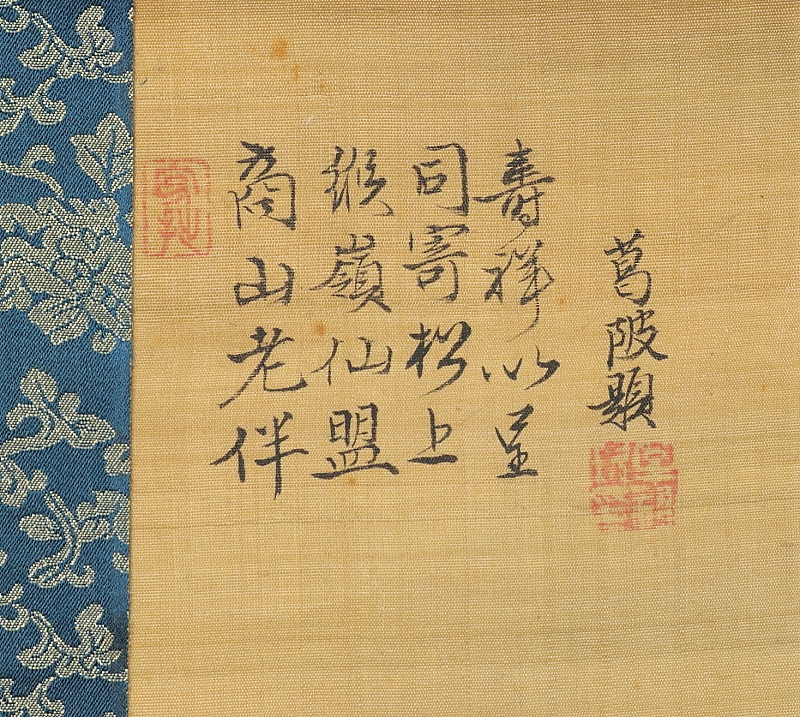 商山老伴
緱嶺仙盟
同寄松上
壽祥以呈
葛陂題